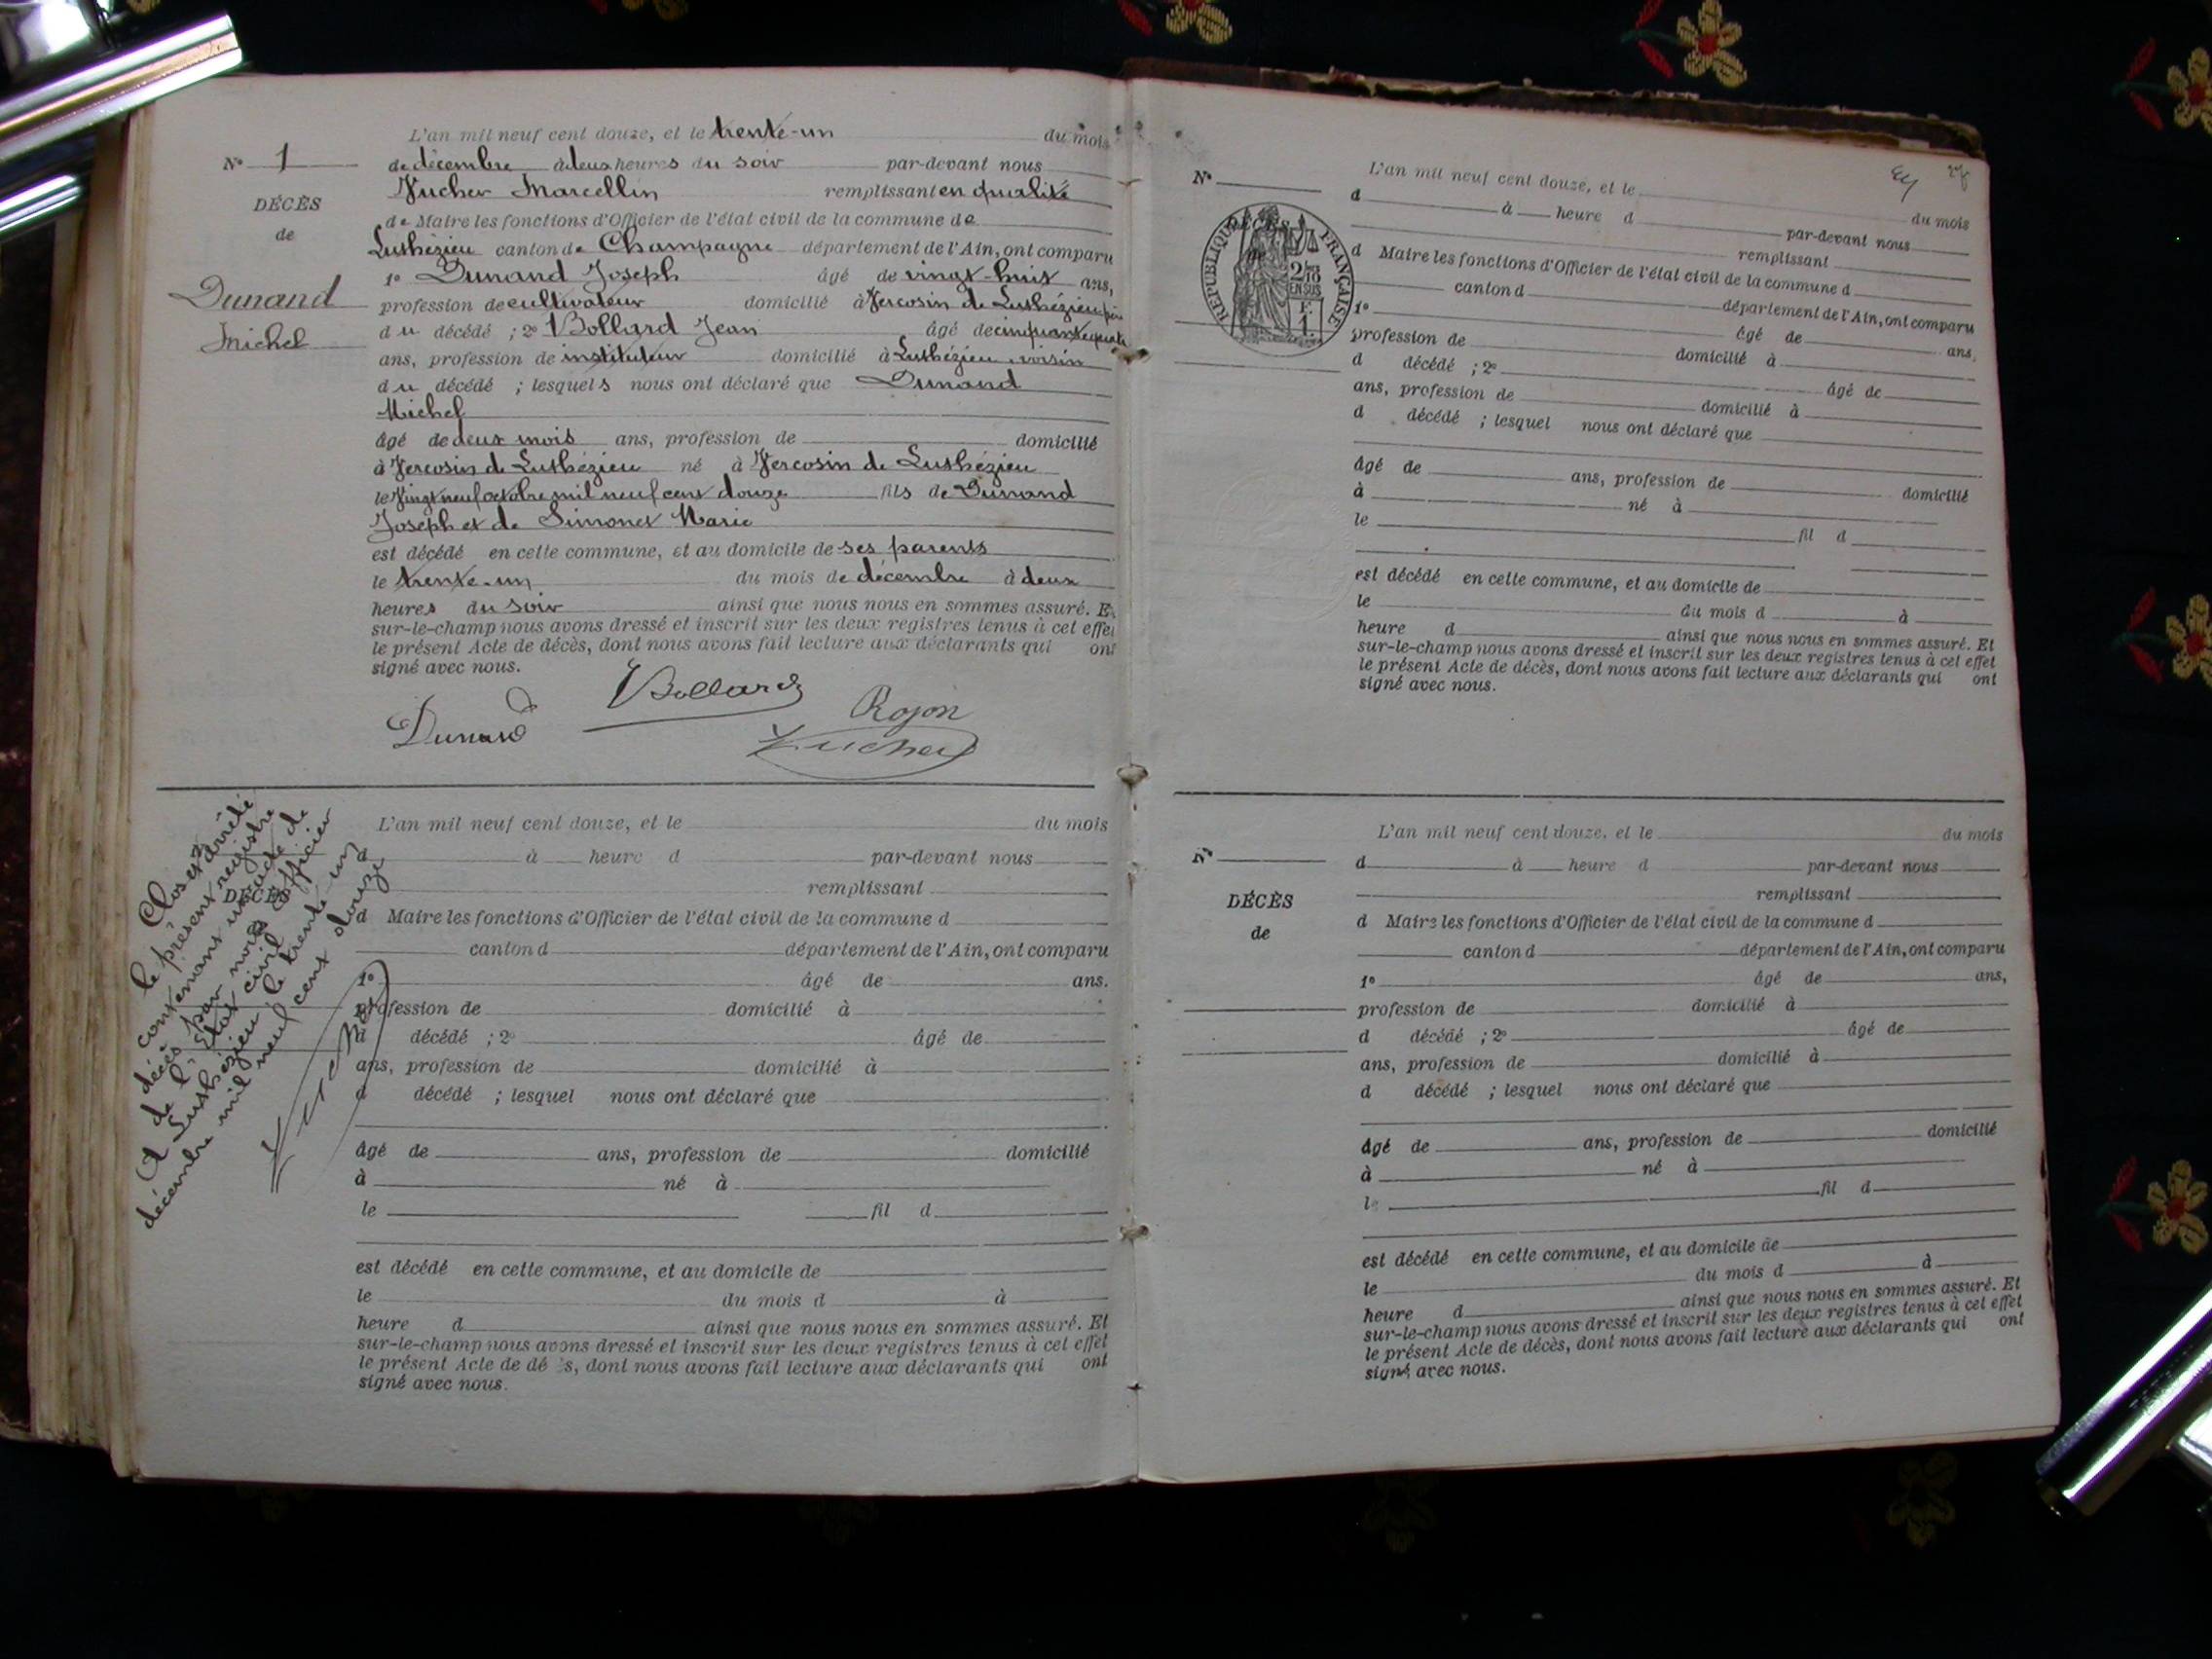 L'an mil neuf cent douze, et le trente-un du mois
N° 1
de décembre à deux heures du soir par-devant nous
Vucher Marcellin remplissant en qualité
DÉCÈS
de
de Maire les fonctions d'Officier de l'état civil de la commune de
Luthézieu canton de Champagne département de l'Ain, ont comparu
1° Dunand Joseph âgé de vingt-huit ans,
Dunand
Michel
profession de cultivateur domicilié à Vercosin de Luthézieu père
du décédé ; 2° Bollard Jean âgé de cinquante quatre
ans, profession de instituteur domicilié à Luthézieu voisin
du décédé ; lesquels nous ont déclaré que Dunand
Michel
âgé de deux mois ans, profession de domicilié
à Vercosin de Luthézieu né à Vercosin de Luthézieu
le Vingt neuf octobre mil neuf cent douze fils de Dunand
Joseph et de Simonet Marie
est décédé en cette commune, et au domicile de ses parents
le trente-un du mois de décembre à deux
heures du soir ainsi que nous nous en sommes assuré. Et
sur-le-champ nous avons dressé et inscrit sur les deux registres tenus à cet effet
le présent Acte de décès, dont nous avons fait lecture aux déclarants qui ont
signé avec nous.
Dunand Bollard Rojon
Vucher
Clos et arrêté
le présent registre
contenant un acte de
décès par nous Officier
de l'Etat civil
A Luthézieu le trente un
décembre mil neuf cent douze
Vucher
L'an mil neuf cent douze, et le du mois
d à heure d par-devant nous
remplissant
DÉCÈS
d Maire les fonctions d'Officier de l'état civil de la commune d
canton d département de l'Ain, ont comparu
1° âgé de ans.
profession de domicilié à
d décédé ; 2° âgé de
ans, profession de domicilié à
d décédé ; lesquel nous ont déclaré que
âgé de ans, profession de domicilié
à né à
le fil d
est décédé en cette commune, et au domicile de
le du mois d à
heure d ainsi que nous nous en sommes assuré. Et
sur-le-champ nous avons dressé et inscrit sur les deux registres tenus à cet effet
le présent Acte de dé s, dont nous avons fait lecture aux déclarants qui ont
signé avec nous.
L'an mil neuf cent douze, et le du mois
N°
d à heure d par-devant nous
remplissant
DÉCÈS
de
RÉPUBLIQUE FRANÇAISE
2/10
EN SUS
F.
1.
d Maire les fonctions d'Officier de l'état civil de la commune d
canton d département de l'Ain, ont comparu
1° âgé de ans,
profession de domicilié à
d décédé ; 2° âgé de
ans, profession de domicilié à
d décédé ; lesquel nous ont déclaré que
âgé de ans, profession de domicilié
à né à
le fil d
est décédé en cette commune, et au domicile de
le du mois d à
heure d ainsi que nous nous en sommes assuré. Et
sur-le-champ nous avons dressé et inscrit sur les deux registres tenus à cet effet
le présent Acte de décès, dont nous avons fait lecture aux déclarants qui ont
signé avec nous.
L'an mil neuf cent douze, et le du mois
N°
d à heure d par-devant nous
remplissant
DÉCÈS
de
d Maire les fonctions d'Officier de l'état civil de la commune d
canton d département de l'Ain, ont comparu
1° âgé de ans,
profession de domicilié à
d décédé ; 2° âgé de
ans, profession de domicilié à
d décédé ; lesquel nous ont déclaré que
âgé de ans, profession de domicilié
à né à
le fil d
est décédé en cette commune, et au domicile de
le du mois d à
heure d ainsi que nous nous en sommes assuré. Et
sur-le-champ nous avons dressé et inscrit sur les deux registres tenus à cet effet
le présent Acte de décès, dont nous avons fait lecture aux déclarants qui ont
signé avec nous.